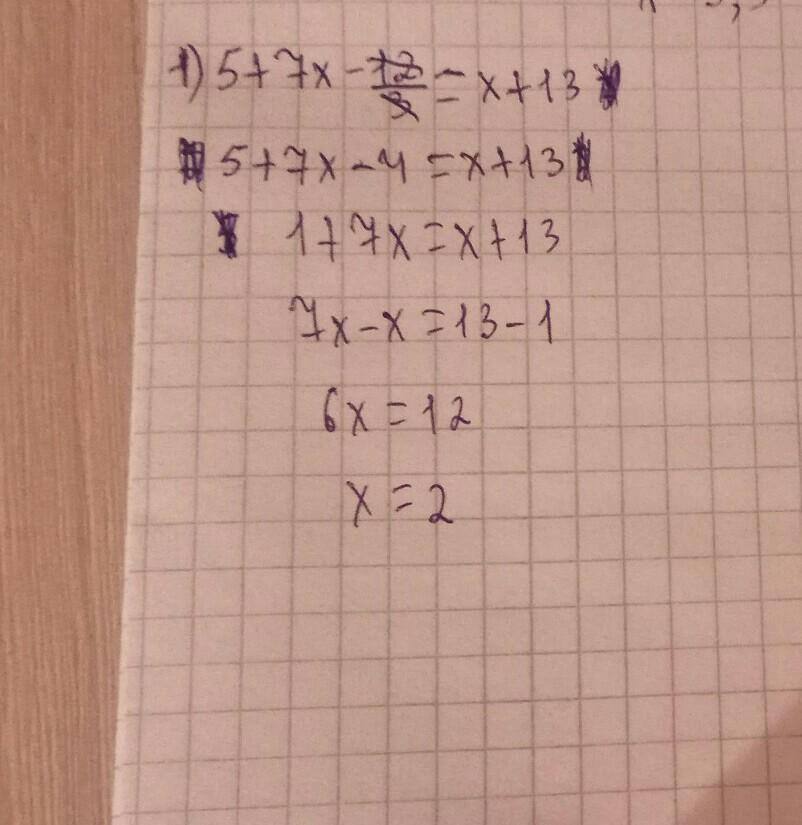 1) 5+7x-12/3=x+13
5+7x-4=x+13
1+7x=x+13
7x-x=13-1
6x=12
x=2